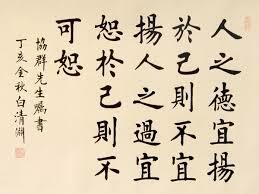 人之德宜揚
於己則不宜
揚人之過宜
恕於己則不
可恕
協群先生囑書
丁亥金秋白清淵